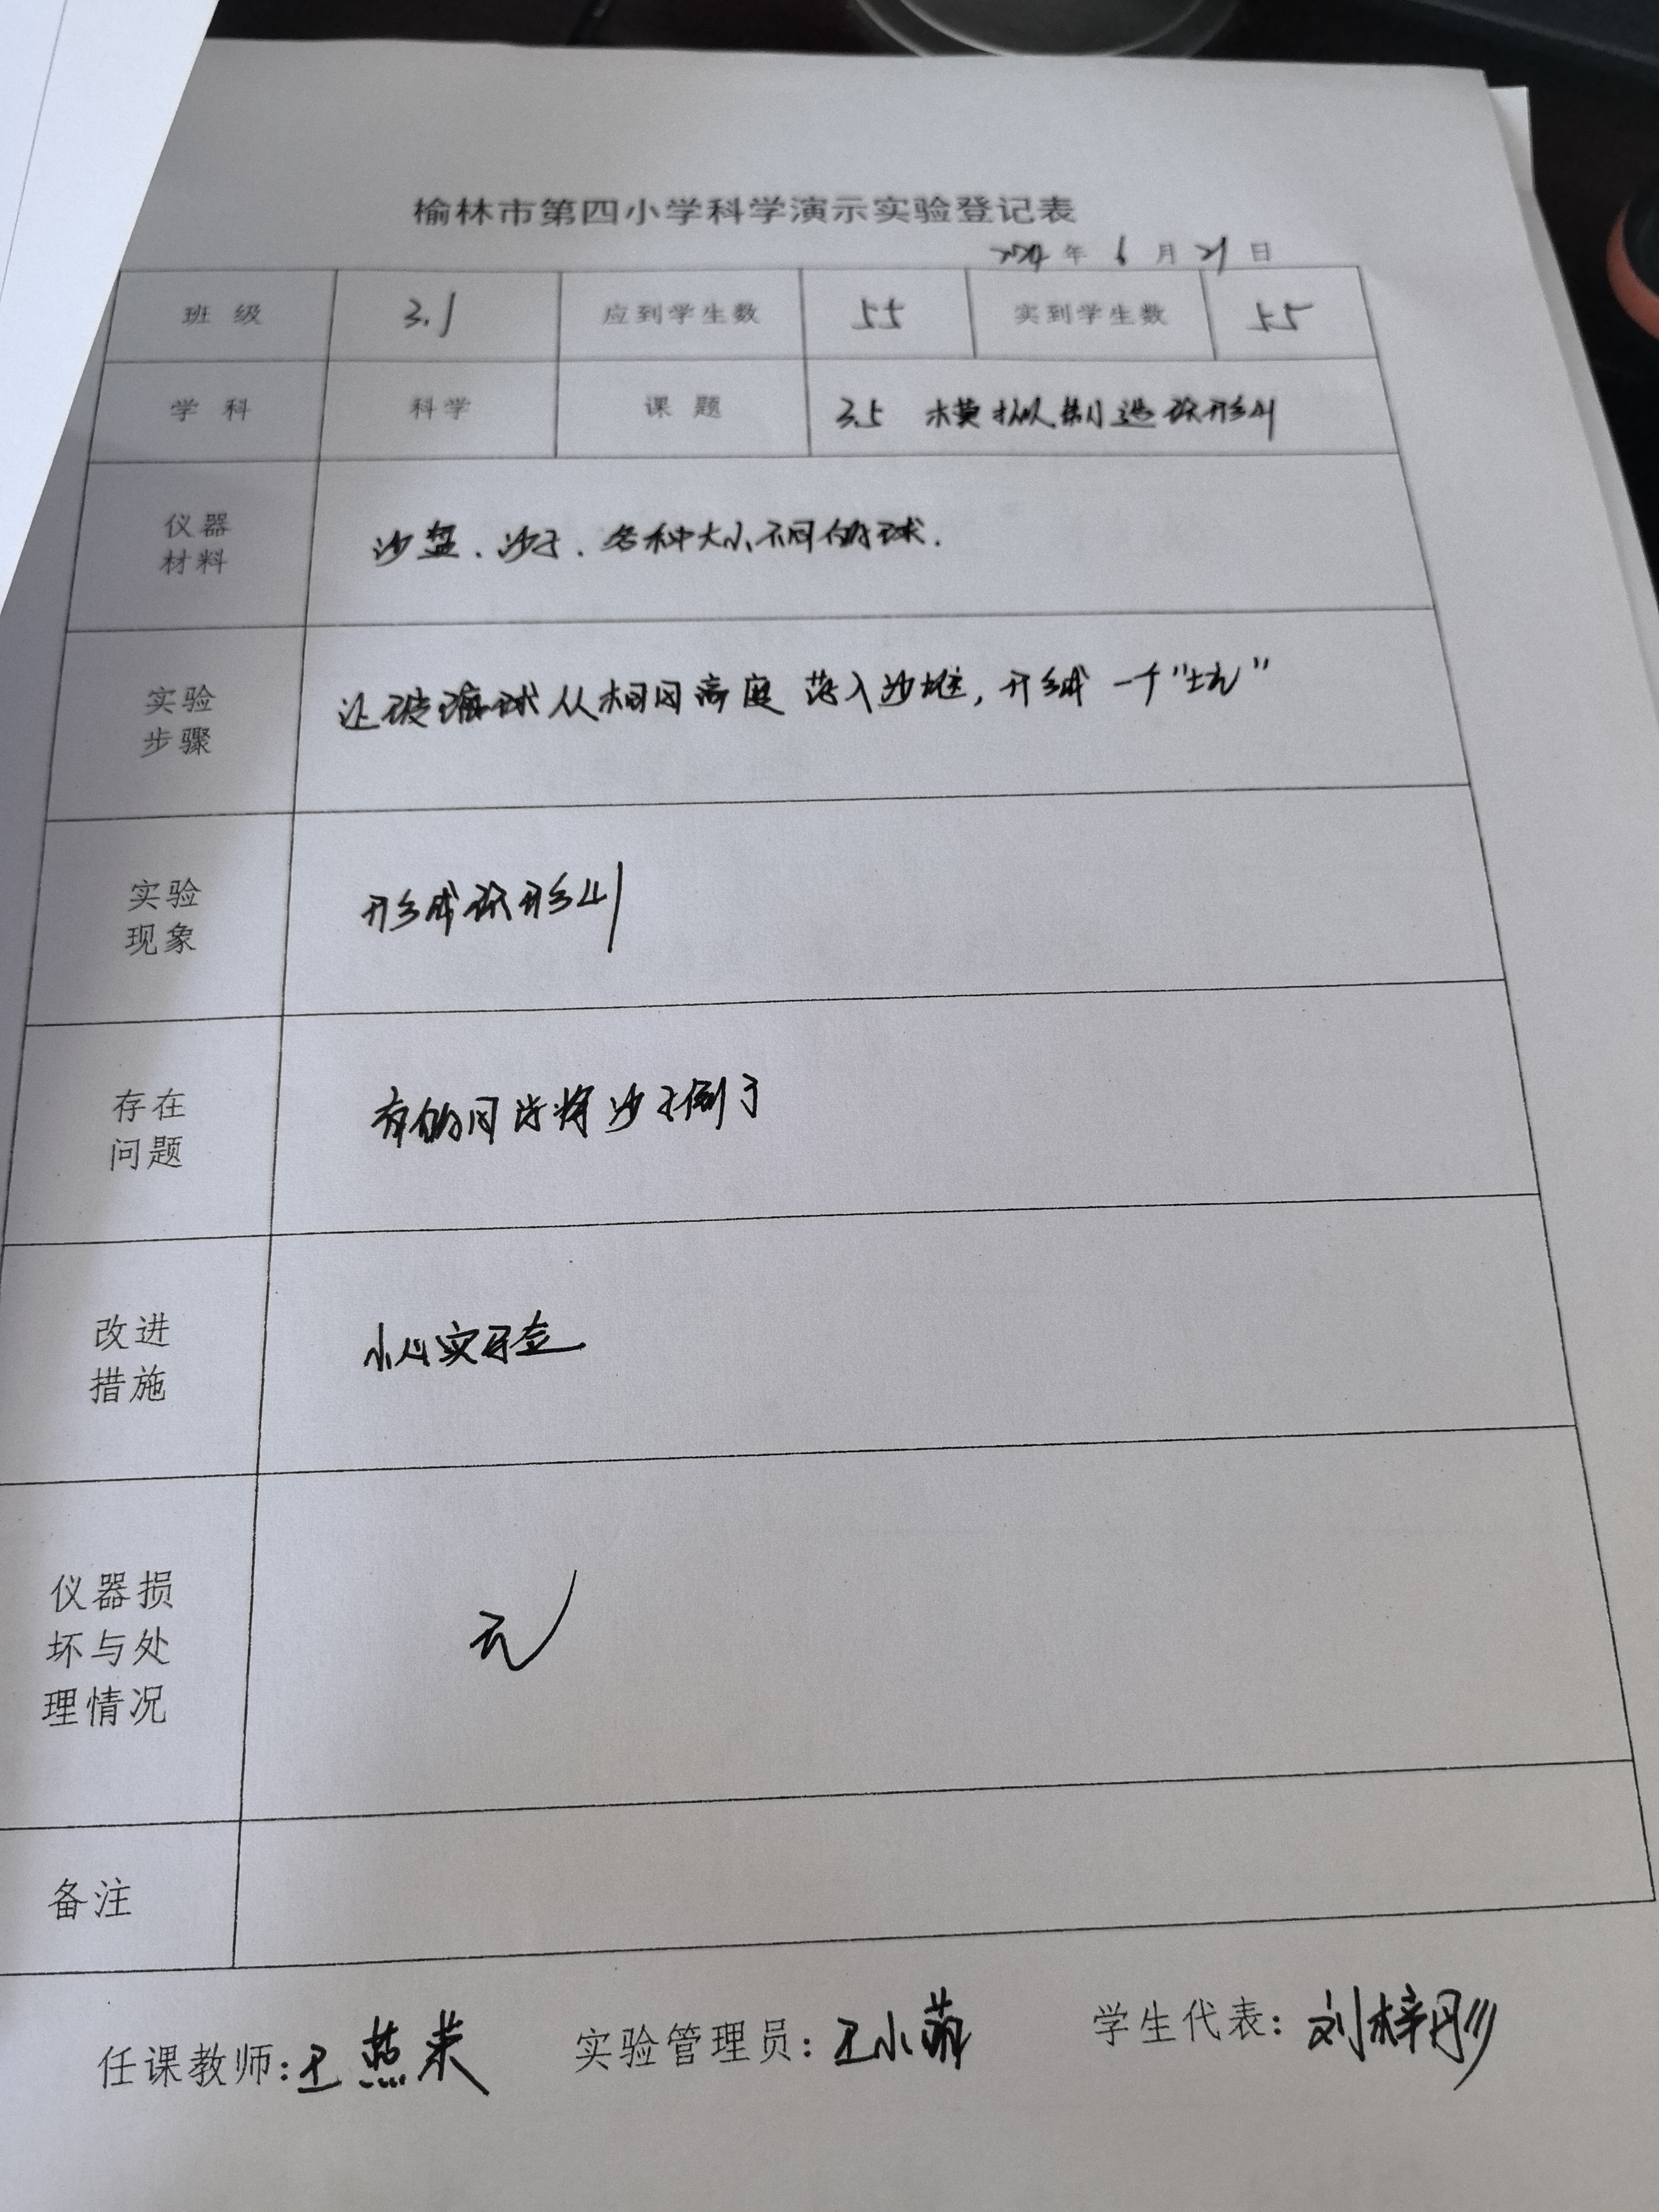 榆林市第四小学科学演示实验登记表
2024年 6 月 21 日
班 级 3.1 应到学生数 55 实到学生数 55
学 科 科学 课 题 3.5 模拟制造环形山
仪器
材料
沙盘、沙子、各种大小不同的球.
实验
步骤
让玻璃球从相同高度落入沙堆,形成一个"坑"
实验
现象
形成环形山
存在
问题
有的同学将沙子倒了
改进
措施
小心实验
仪器损
坏与处
理情况
无
备注
任课教师:王燕 实验管理员:王小 学生代表:刘梓彤